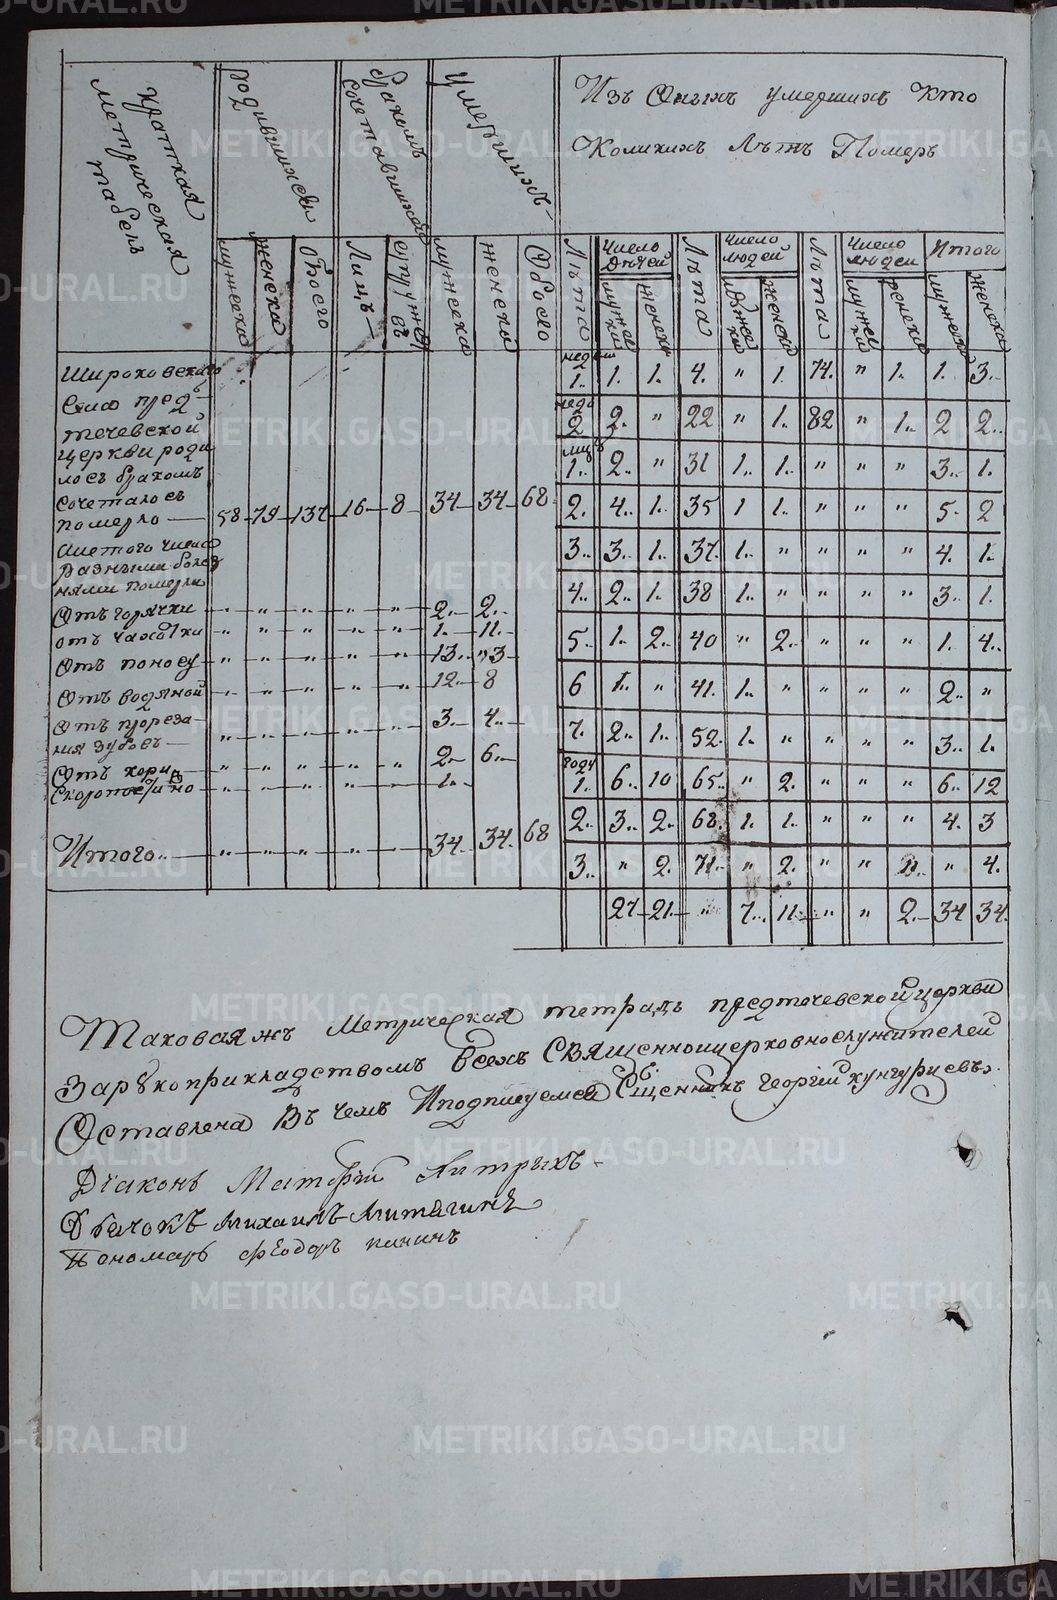 Краткая
метрическая
табель
родившихся
бракомъ
сочетавшихся
умершихъ
Изъ Оныхъ умершихъ кто
Коликихъ Лѣтъ Померъ
мужеска
женска
Обоего
Лицъ
супружес
мужеска
женска
Обоего
Лѣта
число
дѣтей
мужес
женска
Лѣта
число
людей
женска
Лѣта
число
людей
мужес
женска
Итого
мужеска
женска
Широковскаго
Села пред
течевской
церкви роди
лось бракомъ
сочеталось
померло 58 79 137 16 8 34 34 68
А из того числа
разными болез
нями померли
Отъ горячки " " " " " 2 2
отъ чахотки " " " " " 1 11
Отъ поносу " " " " " 13 3
Отъ водяной " " " " " 12 8
Отъ прореза
ния зубовъ " " " " " 3 4
Отъ кори " " " " " 2 6
Скоропостижно " " " " " 1
Итого " " " " " 34 34 68
недели
1 1 1 4 " 1 74 " 1 1 3
неде
2 2 " 22 " 1 82 " 1 2 2
мцъ
1 2 " 31 1 1 " " " 3 1
2 4 1 35 1 1 " " " 5 2
3 3 1 37 1 " " " " 4 1
4 2 1 38 1 " " " " 3 1
5 1 2 40 " 2 " " " 1 4
6 1 " 41 1 " " " " 2 "
7 2 1 52 1 " " " " 3 1
годы
1 6 10 65 " 2 " " " 6 12
2 3 2 68 1 1 " " " 4 3
3 " 2 71 " 2 " " " 4
27 21 " 7 11 " " 2 34 34
Таковая жъ Метрическая тетрадь предтечевской церкви
За рукоприкладствомъ всехъ Священноицерковнослужителей
Оставлена Въ чемъ И подписуемся Сщенникъ Георгий кунгурцевъ
Диаконъ Матфий
Дьячокъ Михаилъ Митягинъ
Пономарь Феодоръ панинъ
METRIKI.GASO-URAL.RU